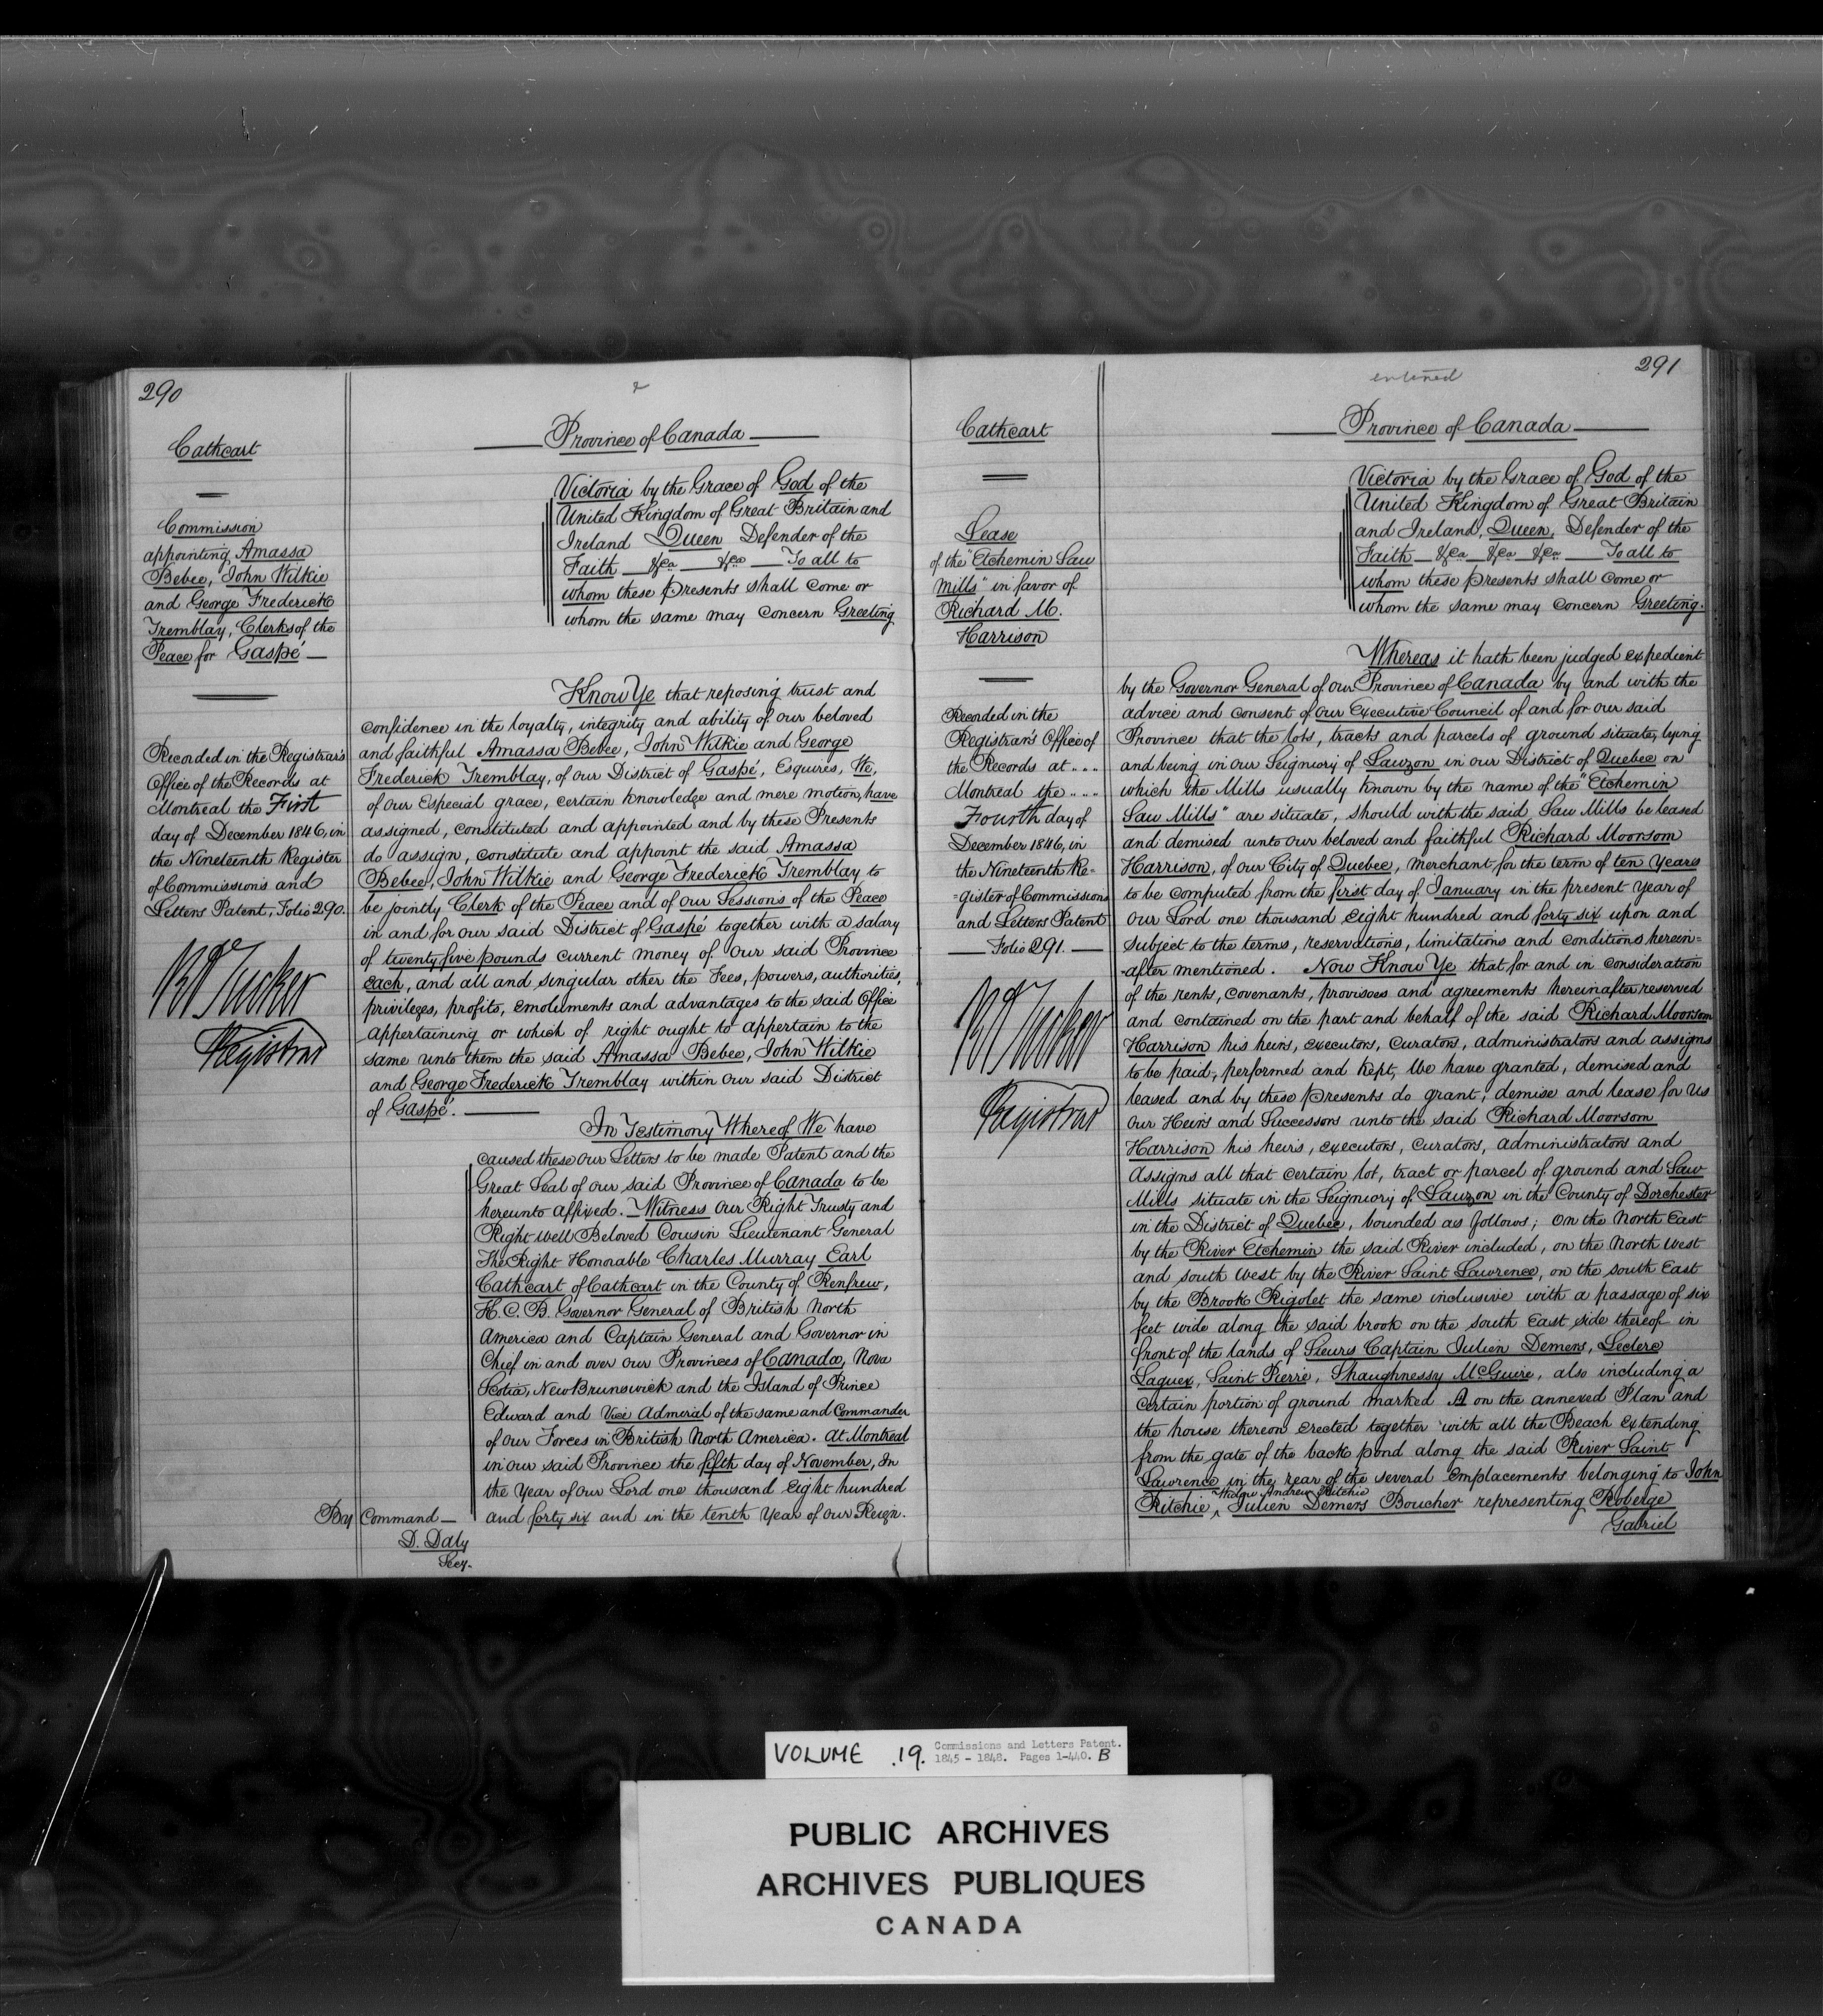 290
Cathcart
Commission
appointing Amassa
Bebee, John Wilkie
and George Frederick
Tremblay, Clerks of the
Peace for Gaspé
Recorded in the Registrar's
Office of the Records at
Montreal the First
day of December 1846, in
the Nineteenth Register
of Commissions and
Letters Patent, Folio 290.
Tucker
Registrar
Province of Canada
Victoria by the Grace of God of the
United Kingdom of Great Britain and
Ireland Queen Defender of the
Faith &ca &ca To all to
whom these Presents shall come or
whom the same may concern Greeting
Know Ye that reposing trust and
confidence in the loyalty, integrity and ability of our beloved
and faithful Amassa Bebee, John Wilkie and George
Frederick Tremblay, of our District of Gaspé, Esquires, We,
of our Especial grace, certain knowledge and mere motion, have
assigned, constituted and appointed and by these Presents
do assign, constitute and appoint the said Amassa
Bebee, John Wilkie and George Frederick Tremblay to
be jointly Clerk of the Peace and of our Sessions of the Peace
in and for our said District of Gaspé together with a salary
of twenty five pounds current money of our said Province
each, and all and singular other the Fees, powers, authorities,
privileges, profits, emoluments and advantages to the said Office
appertaining or which of right ought to appertain to the
same unto them the said Amassa Bebee, John Wilkie
and George Frederick Tremblay within our said District
of Gaspé.
In Testimony Whereof We have
caused these our Letters to be made Patent and the
Great Seal of our said Province of Canada to be
hereunto affixed. Witness our Right Trusty and
Right Well Beloved Cousin Lieutenant General
The Right Honorable Charles Murray Earl
Cathcart of Cathcart in the County of Renfrew,
K.C.B. Governor General of British North
America and Captain General and Governor in
Chief in and over our Provinces of Canada, Nova
Scotia, New Brunswick and the Island of Prince
Edward and Vice Admiral of the same and Commander
of our Forces in British North America. At Montreal
in our said Province the fifth day of November, In
the Year of our Lord one thousand Eight hundred
and forty six and in the tenth Year of our Reign.
By Command
D. Daly
Secy.
291
Cathcart
Lease
of the "Etchemin Saw
Mills" in favor of
Richard M.
Harrison
Recorded in the
Registrar's Office of
the Records at ....
Montreal the ....
Fourth day of
December 1846, in
the Nineteenth Re=
=gister of Commissions
and Letters Patent
Folio 291.
Tucker
Registrar
entered
Province of Canada
Victoria by the Grace of God of the
United Kingdom of Great Britain
and Ireland, Queen, Defender of the
Faith &ca &ca &ca To all to
whom these Presents shall come or
whom the same may concern Greeting.
Whereas it hath been judged expedient
by the Governor General of our Province of Canada by and with the
advice and consent of our Executive Council of and for our said
Province that the lots, tracts and parcels of ground situate, lying
and being in our Seigniory of Lauzon in our District of Quebec on
which the Mills usually known by the name of the "Etchemin
Saw Mills" are situate, should with the said Saw Mills be leased
and demised unto our beloved and faithful Richard Moorsom
Harrison, of our City of Quebec, merchant for the term of ten Years
to be computed from the first day of January in the present Year of
our Lord one thousand Eight hundred and forty six upon and
subject to the terms, reservations, limitations and conditions herein=
-after mentioned. Now Know Ye that for and in consideration
of the rents, covenants, provisoes and agreements hereinafter reserved
and contained on the part and behalf of the said Richard Moorsom
Harrison his heirs, executors, curators, administrators and assigns
to be paid, performed and kept, We have granted, demised and
leased and by these Presents do grant, demise and lease for us
our Heirs and Successors unto the said Richard Moorsom
Harrison his heirs, executors, curators, administrators and
Assigns all that certain lot, tract or parcel of ground and Saw
Mills situate in the Seigniory of Lauzon in the County of Dorchester
in the District of Quebec, bounded as follows; on the North East
by the River Etchemin the said River included, on the North West
and south West by the River Saint Lawrence, on the south East
by the Brook Rigolet the same inclusive with a passage of six
feet wide along the said brook on the south East side thereof in
front of the lands of Sieurs Captain Julien Demers, Leclerc
Laguex, Saint Pierre, Shaughnessy McGuire, also including a
certain portion of ground marked A on the annexed Plan and
the house thereon erected together with all the Beach extending
from the gate of the back pond along the said River Saint
Lawrence in the rear of the several emplacements belonging to John
Widow Andrew Ritchie
Ritchie, ^ Julien Demers Boucher representing Roberge
Gabriel
VOLUME .19. Commissions and Letters Patent.
1845 - 1848. Pages 1-440. B
PUBLIC ARCHIVES
ARCHIVES PUBLIQUES
CANADA